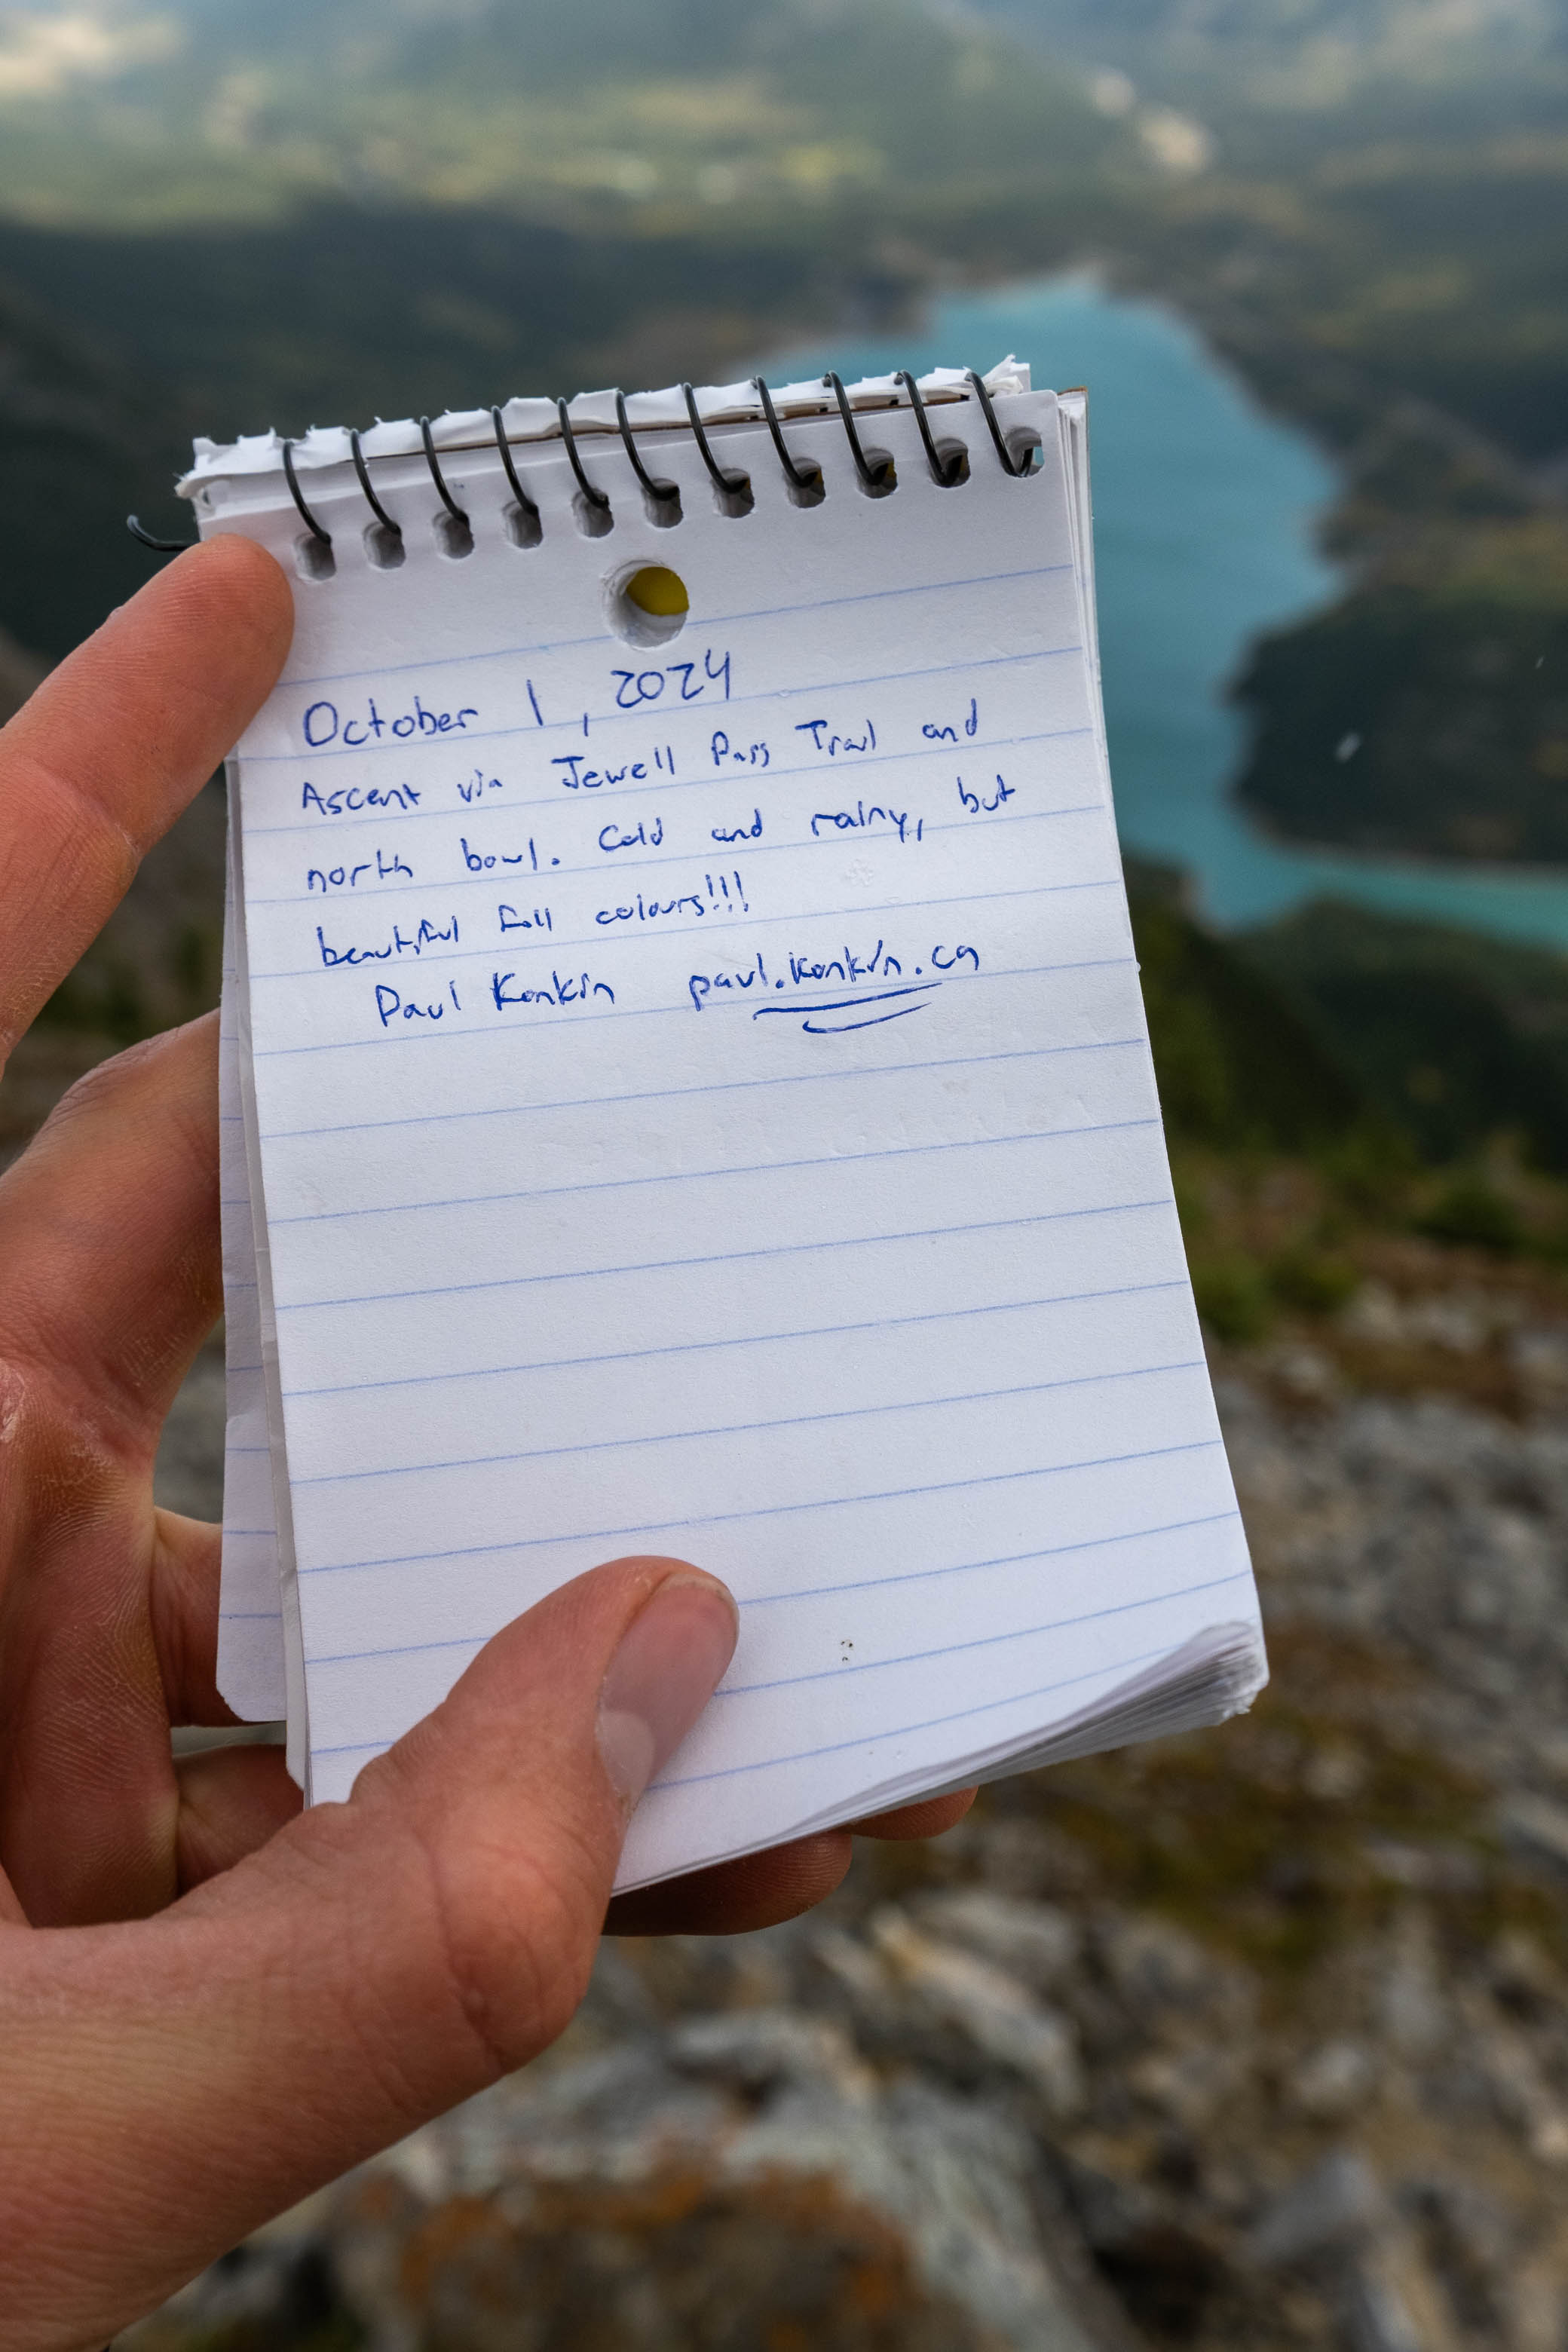 October 1, 2024
Ascent via Jewell Pass Trail and
north bowl. Cold and rainy, but
beautiful fall colours!!!
Paul Konkin paul.konkin.ca